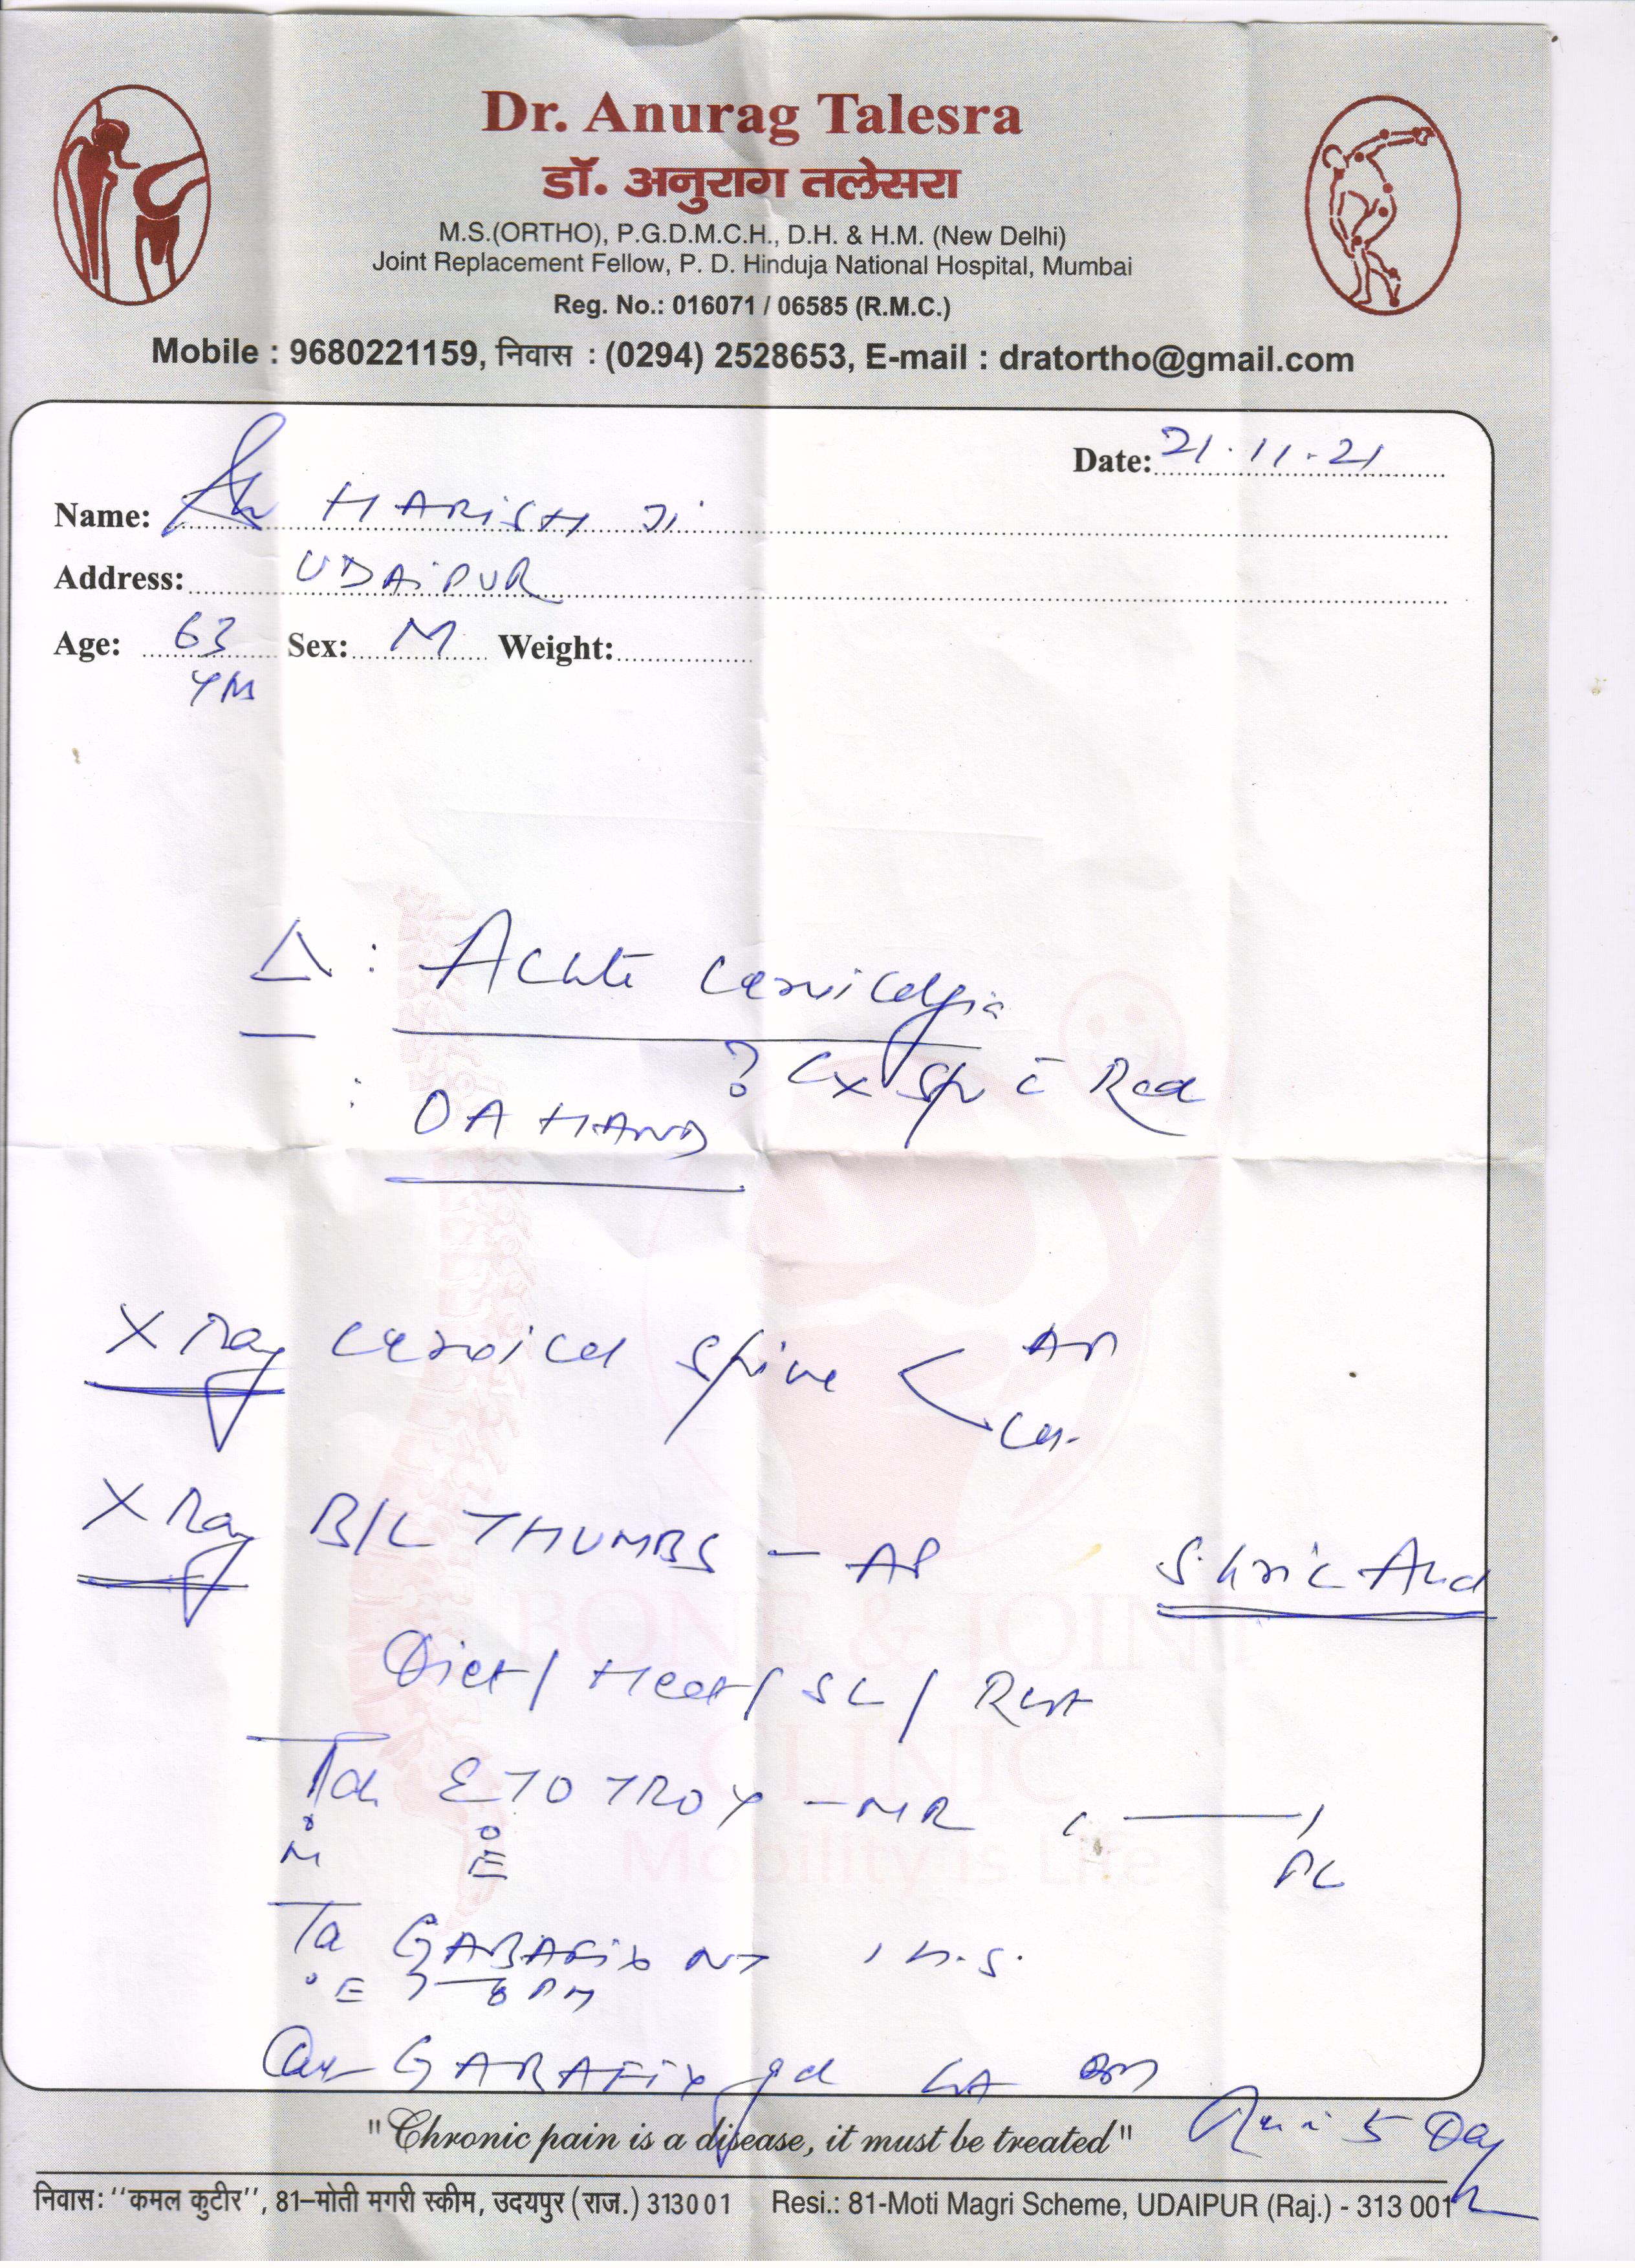 Dr. Anurag Talesra
डॉ. अनुराग तलेसरा
M.S.(ORTHO), P.G.D.M.C.H., D.H. & H.M. (New Delhi)
Joint Replacement Fellow, P. D. Hinduja National Hospital, Mumbai
Reg. No.: 016071 / 06585 (R.M.C.)
Mobile : 9680221159, निवास : (0294) 2528653, E-mail : dratortho@gmail.com
Date: 21.11.21
Name: HARISH Ji
Address: UDAiPUR
Age: 63 Sex: M Weight:
Δ : Acute Cervicalgia
? Cx Sp c̄ Rad
: OA HAND
X Ray Cervical Spine < AP
Lat.
X Ray B/L THUMBS - AP
Diet / Heat / SL / Rest
ETOTROY - MR
M E
GABAFix NT 1 H.S.
E 7-8 PM
GABAFix gel LA
5 Day
BONE & JOINT
CLINIC
Mobility is Life
"Chronic pain is a disease, it must be treated"
निवास: ''कमल कुटीर'', 81-मोती मगरी स्कीम, उदयपुर (राज.) 313001 Resi.: 81-Moti Magri Scheme, UDAIPUR (Raj.) - 313 001